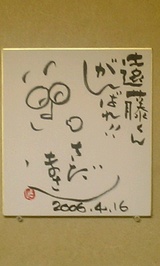 遠藤くん
がんばれ!!
さだ
まさし
2006.4.16